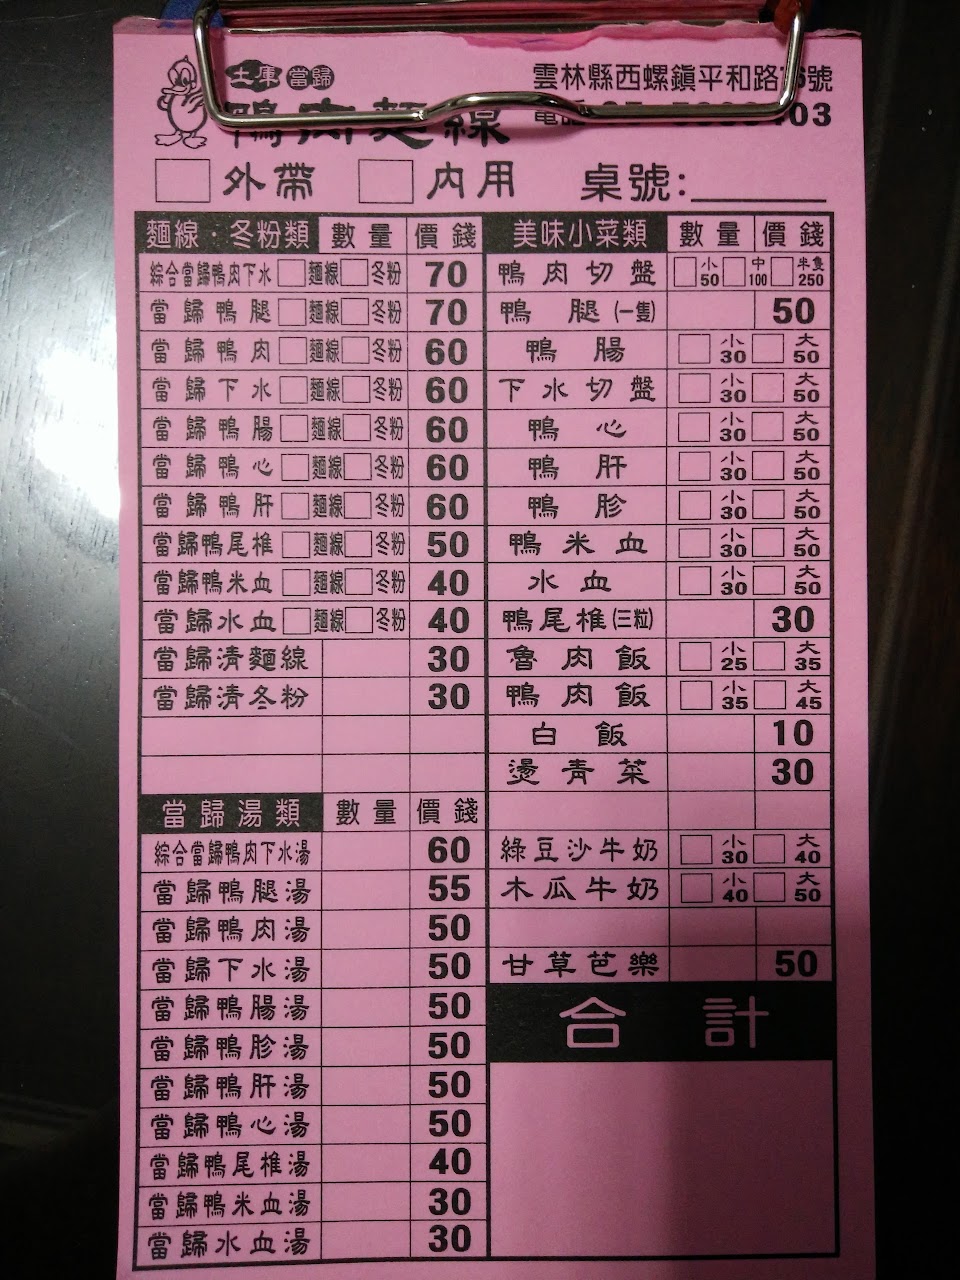 土庫 當歸
鴨肉麵線
雲林縣西螺鎮平和路 6號
電話 03
外帶 內用 桌號:
麵線·冬粉類 數量 價錢
綜合當歸鴨肉下水 麵線 冬粉 70
當歸鴨腿 麵線 冬粉 70
當歸鴨肉 麵線 冬粉 60
當歸下水 麵線 冬粉 60
當歸鴨腸 麵線 冬粉 60
當歸鴨心 麵線 冬粉 60
當歸鴨肝 麵線 冬粉 60
當歸鴨尾椎 麵線 冬粉 50
當歸鴨米血 麵線 冬粉 40
當歸水血 麵線 冬粉 40
當歸清麵線 30
當歸清冬粉 30
當歸湯類 數量 價錢
綜合當歸鴨肉下水湯 60
當歸鴨腿湯 55
當歸鴨肉湯 50
當歸下水湯 50
當歸鴨腸湯 50
當歸鴨胗湯 50
當歸鴨肝湯 50
當歸鴨心湯 50
當歸鴨尾椎湯 40
當歸鴨米血湯 30
當歸水血湯 30
美味小菜類 數量 價錢
鴨肉切盤 小50 中100 半隻250
鴨腿(一隻) 50
鴨腸 小30 大50
下水切盤 小30 大50
鴨心 小30 大50
鴨肝 小30 大50
鴨胗 小30 大50
鴨米血 小30 大50
水血 小30 大50
鴨尾椎(三粒) 30
魯肉飯 小25 大35
鴨肉飯 小35 大45
白飯 10
燙青菜 30
綠豆沙牛奶 小30 大40
木瓜牛奶 小40 大50
甘草芭樂 50
合計